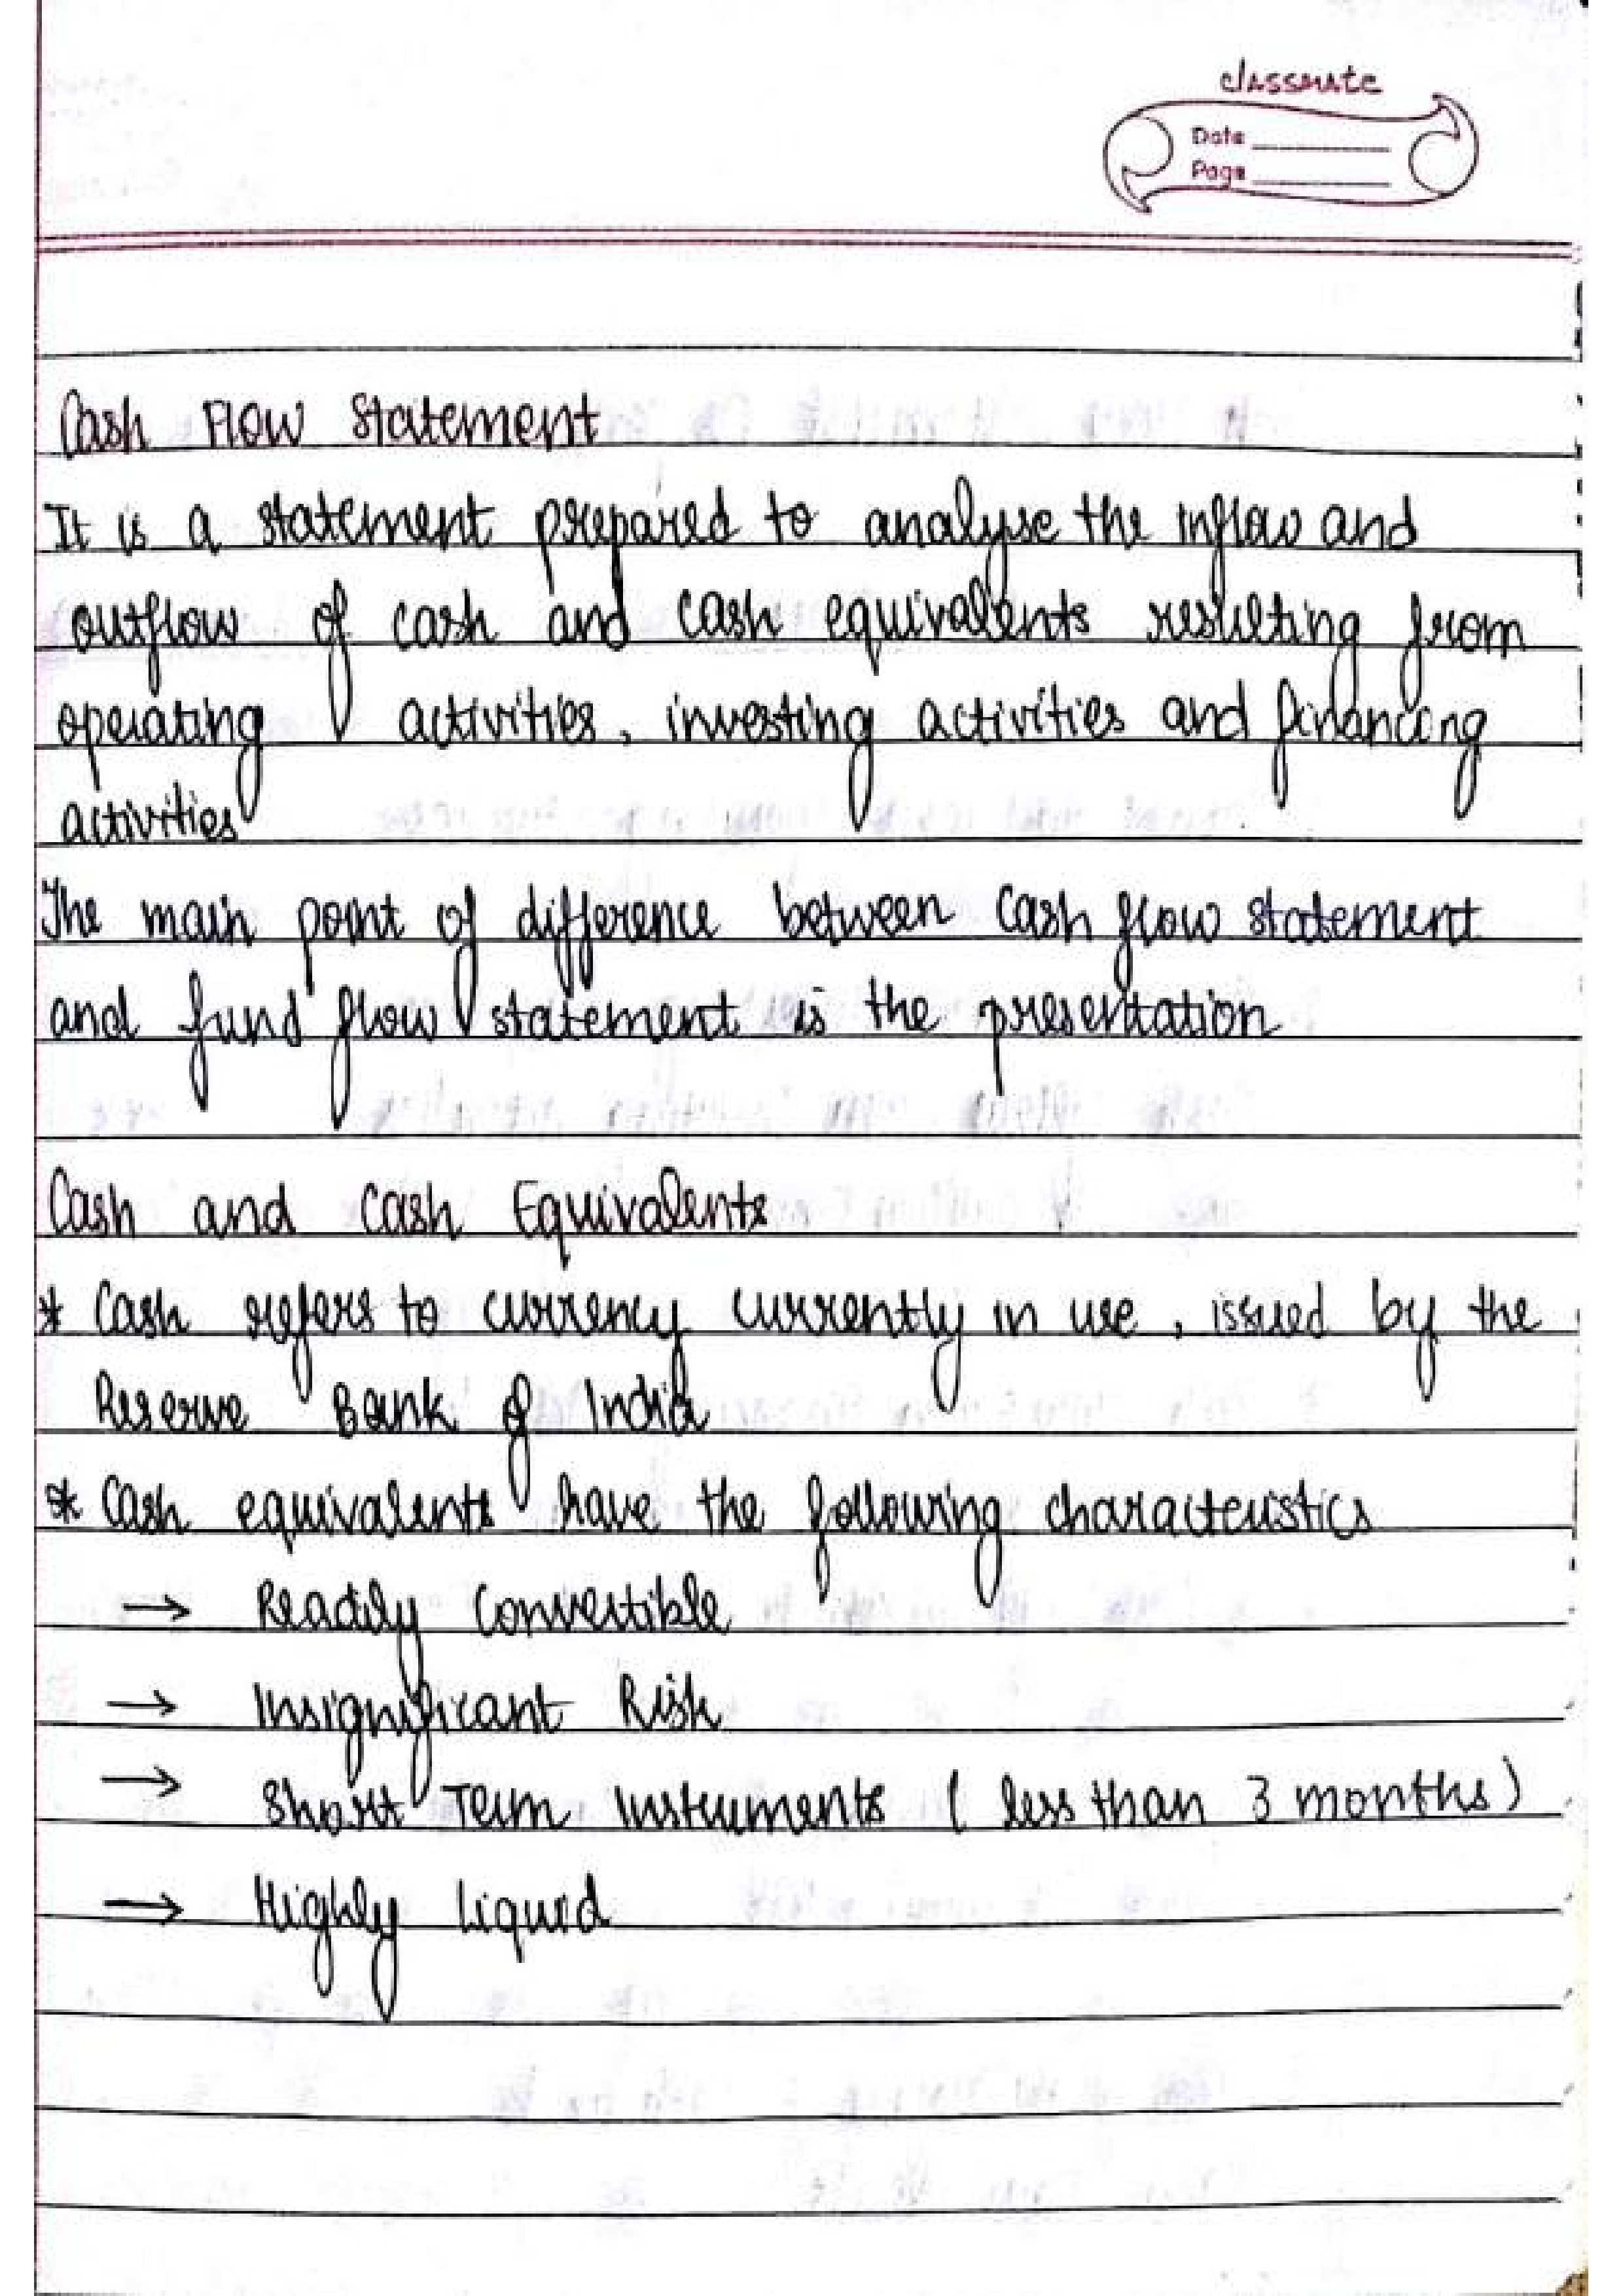 classmate
Date
Page
Cash Flow Statement
It is a statement prepared to analyse the inflow and
outflow of cash and cash equivalents resulting from
operating activities, investing activities and financing
activities
The main point of difference between Cash flow statement
and fund flow statement is the presentation
Cash and Cash Equivalents
* Cash refers to currency currently in use, issued by the
Reserve Bank of India
* Cash equivalents have the following characteristics
→ Readily Convertible
→ Insignificant Risk
→ Short Term Instruments (less than 3 months)
→ Highly Liquid